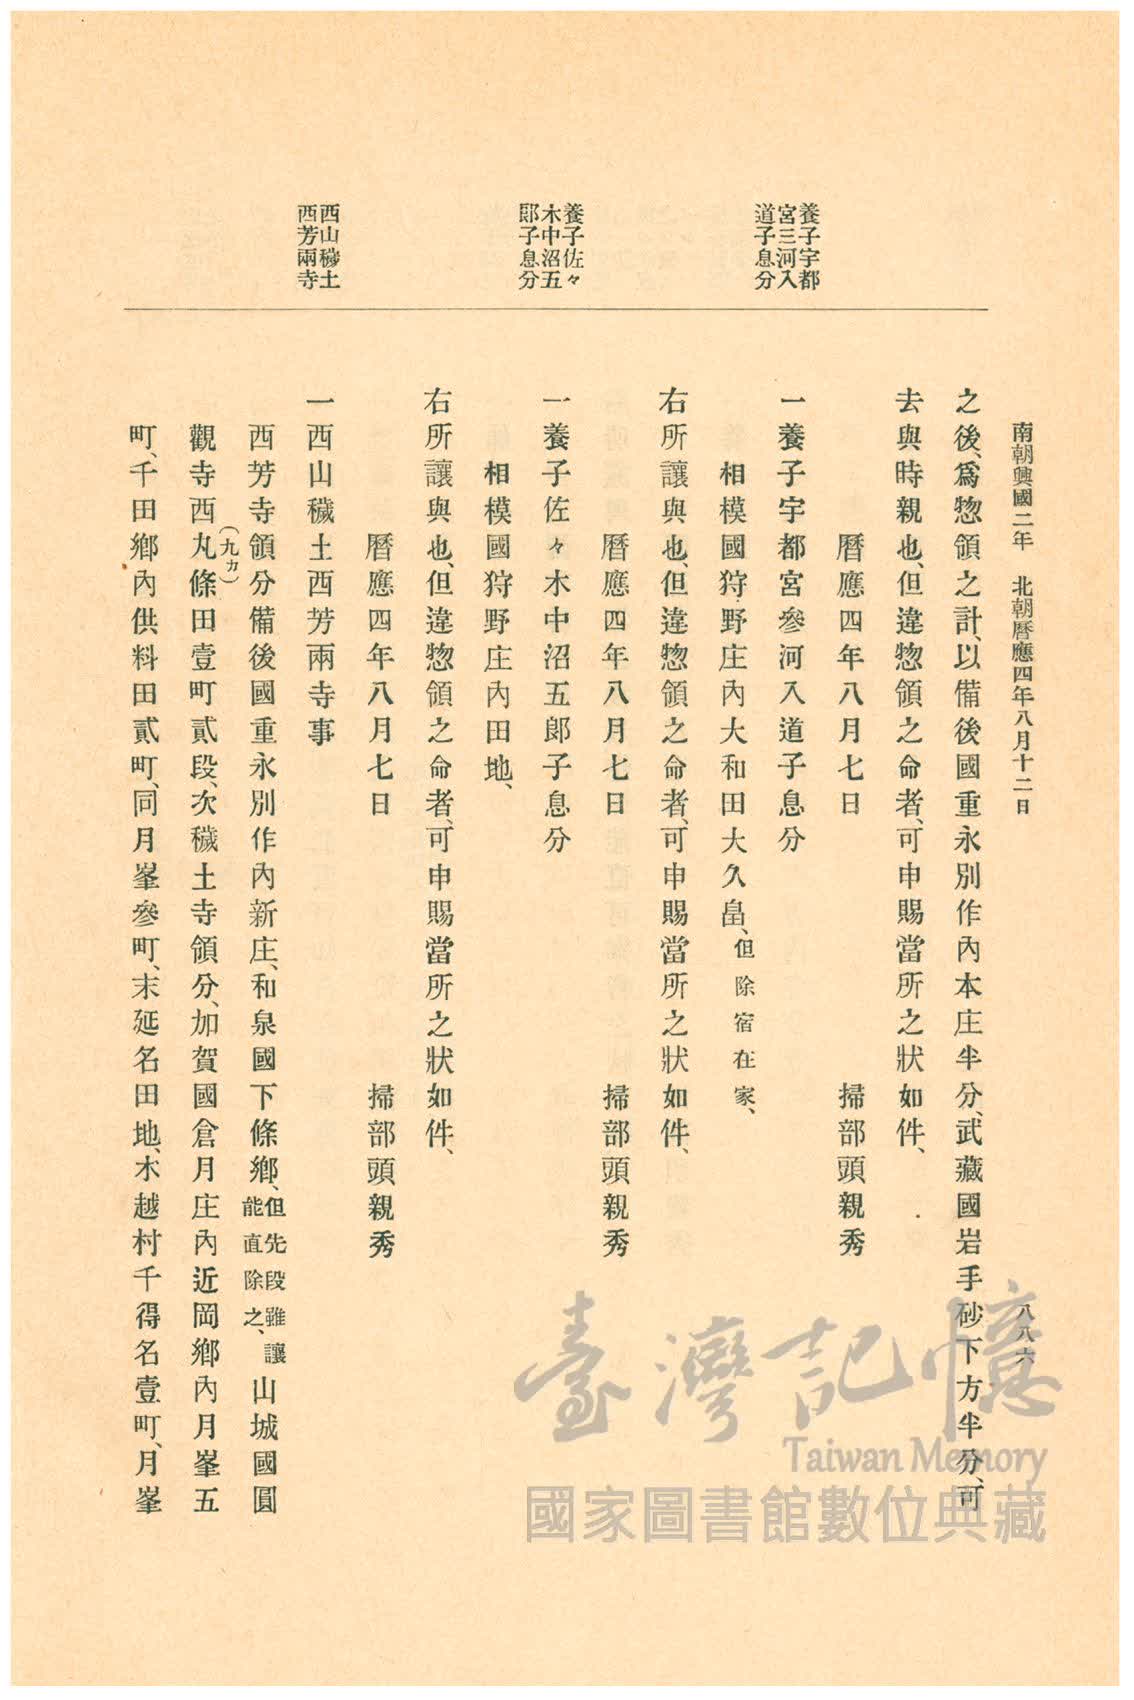 南朝興國二年　北朝曆應四年八月十二日
八八六
養子宇都
宮三河入
道子息分
養子佐々
木中沼五
郎子息分
西山穢土
西芳兩寺
之後、爲惣領之計、以備後國重永別作內本庄半分、武藏國岩手砂下方半分、可
去與時親也、但違惣領之命者、可申賜當所之狀如件、
曆應四年八月七日　掃部頭親秀
一養子宇都宮參河入道子息分
相模國狩野庄內大和田大久畠、但除宿在家、
右所讓與也、但違惣領之命者、可申賜當所之狀如件、
曆應四年八月七日　掃部頭親秀
一養子佐々木中沼五郎子息分
相模國狩野庄內田地、
右所讓與也、但違惣領之命者、可申賜當所之狀如件、
曆應四年八月七日　掃部頭親秀
一西山穢土西芳兩寺事
西芳寺領分備後國重永別作內新庄、和泉國下條鄉、但先段雖讓能直除之、山城國圓
觀寺西丸(九カ)條田壹町貳段、次穢土寺領分、加賀國倉月庄內近岡鄉內月峯五
町、千田鄉內供料田貳町、同月峯參町、末延名田地、木越村千得名壹町、月峯
臺灣記憶
Taiwan Memory
國家圖書館數位典藏